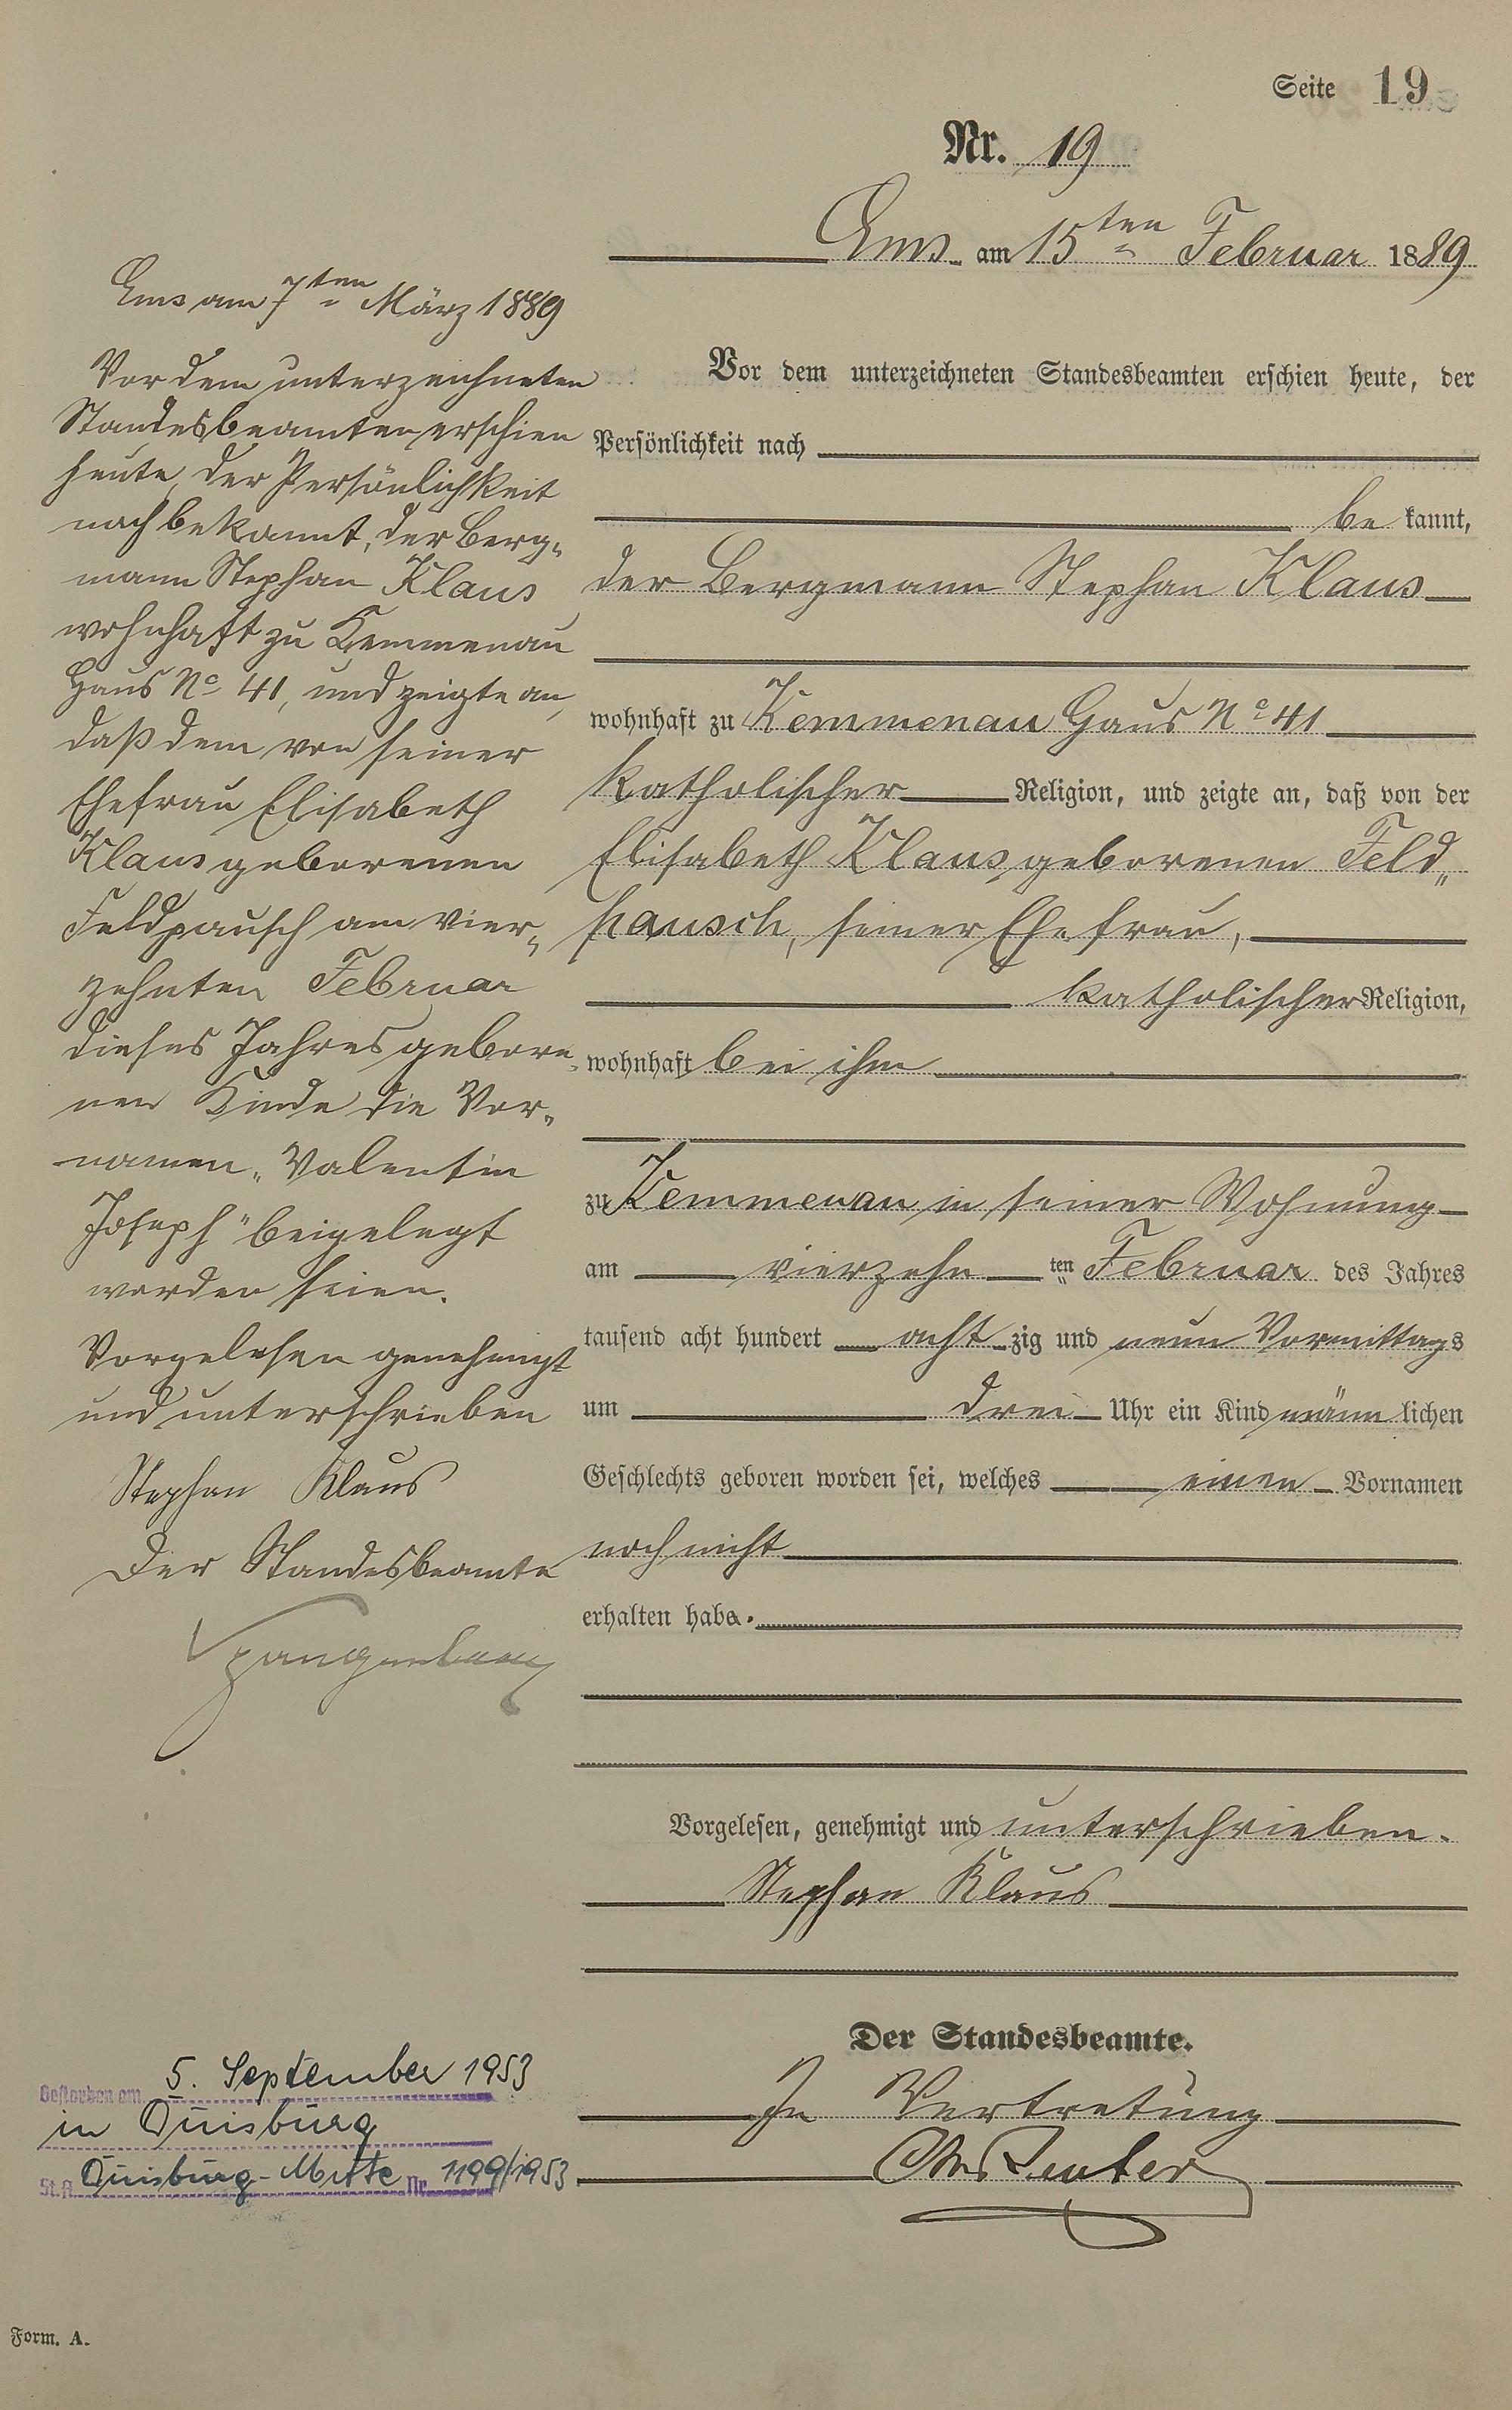 Seite 19
Nr. 19
Ems am 15ten Februar 1889
Vor dem unterzeichneten Standesbeamten erschien heute, der
Persönlichkeit nach
be kannt,
der Bergmann Stephan Klaus
wohnhaft zu Kemmenau Haus No 41
katholischer Religion, und zeigte an, daß von der
Elisabeth Klaus, geborenen Feld„
pausch, seiner Ehefrau,
katholischer Religion,
wohnhaft bei ihm
zu Kemmenau in seiner Wohnung
am vierzehn ten Februar des Jahres
tausend acht hundert acht zig und neun Vormittags
um drei Uhr ein Kind männ lichen
Geschlechts geboren worden sei, welches einen Vornamen
noch nicht
erhalten habe.
Vorgelesen, genehmigt und unterschrieben.
Stephan Klaus
Der Standesbeamte.
In Vertretung
Reuter
Ems am 7ten März 1889
Vor dem unterzeichneten
Standesbeamten erschien
heute, der Persönlichkeit
nach bekannt, der Berg„
mann Stephan Klaus
wohnhaft zu Kemmenau
Haus No 41, und zeigte an,
daß dem von seiner
Ehefrau Elisabeth
Klaus geborenen
Feldpausch am vier„
zehnten Februar
dieses Jahres gebore„
nen Kinde die Vor„
namen „Valentin
Joseph" beigelegt
worden seien.
Vorgelesen genehmigt
und unterschrieben
Stephan Klaus
Der Standesbeamte
Spangenberg
Gestorben am 5. September 1953
in Duisburg
St.A. Duisburg-Mitte Nr. 1199/1953.
Form. A.